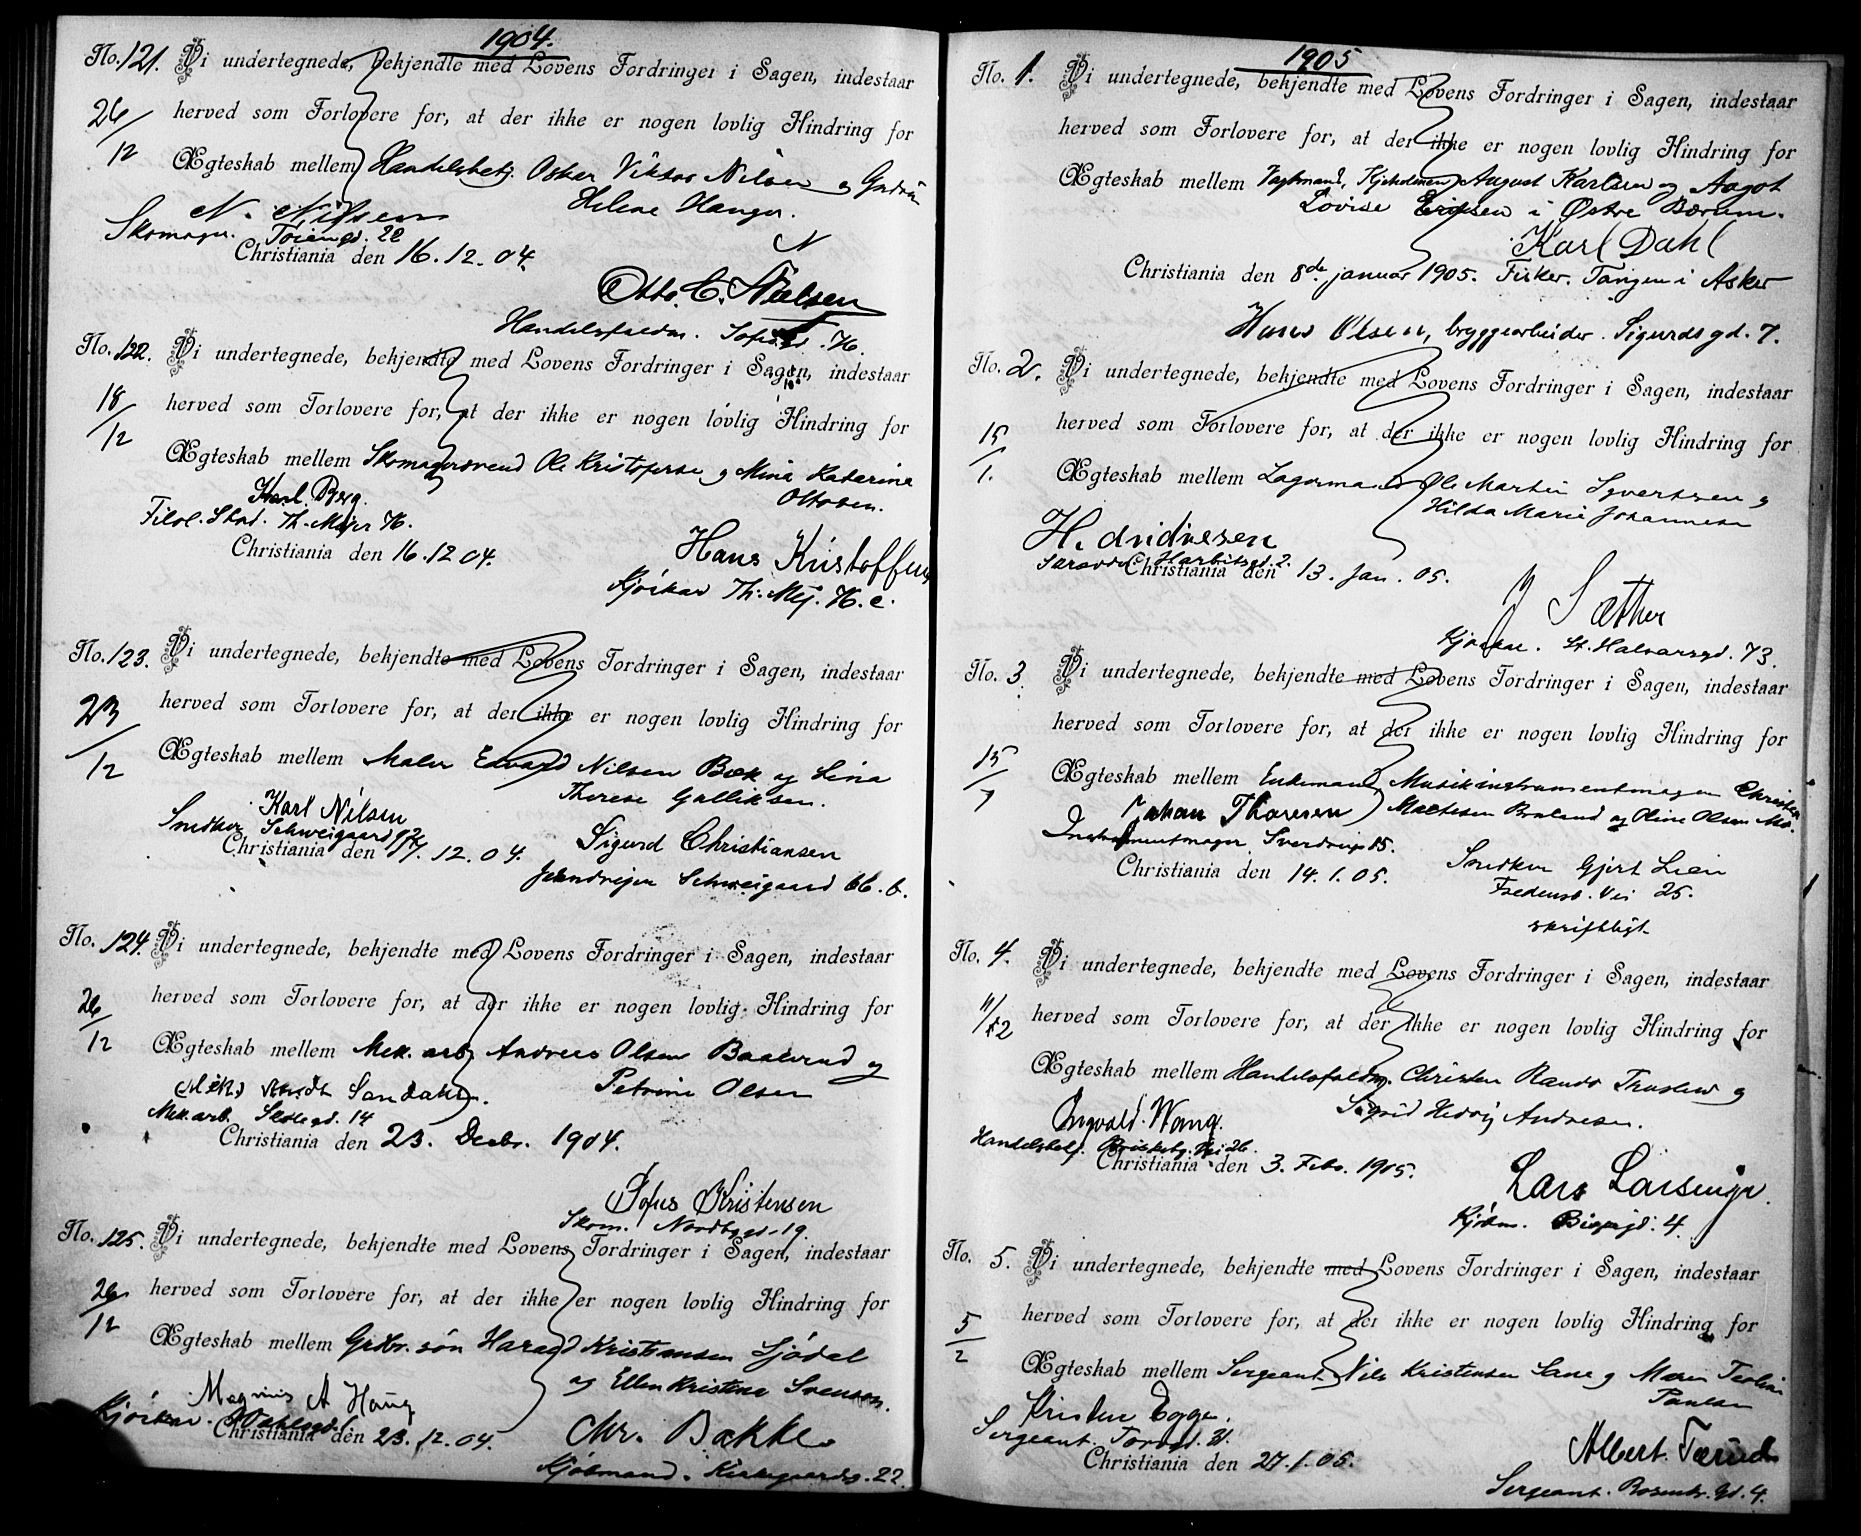 1904.
No. 121. Vi undertegnede, bekjendte med Lovens Fordringer i Sagen, indestaar
26/12 herved som Forlovere for, at der ikke er nogen lovlig Hindring for
Ægteskab mellem Handelsbetj. Oskar Viktor Nilsen og
Helene Hanger.
N. Nilsen
Skomager. Tøiengd. 22
Christiania den 16.12.04.
Otto. C. Nielsen
Handelsfuldm.
No. 122. Vi undertegnede, bekjendte med Lovens Fordringer i Sagen, indestaar
18/12 herved som Forlovere for, at der ikke er nogen lovlig Hindring for
Ægteskab mellem Skomagersvend Ole Kristofersen og Mina Katarina
Ottosen.
Karl Berg.
Filol. Stud. Th. Meyer
Christiania den 16.12.04.
Hans Kristoffersen
Kjørkar Th. Mej.
No. 123. Vi undertegnede, bekjendte med Lovens Fordringer i Sagen, indestaar
23/12 herved som Forlovere for, at der ikke er nogen lovlig Hindring for
Ægteskab mellem Maler Edvard Nilsen Bæk og Lina
Therese Gulliksen.
Karl Nilsen
Snedker Schweigaard
Christiania den 17.12.04.
Sigurd Christiansen
Schweigaard 66.b.
No. 124. Vi undertegnede, bekjendte med Lovens Fordringer i Sagen, indestaar
26/12 herved som Forlovere for, at der ikke er nogen lovlig Hindring for
Ægteskab mellem Mek. arb. Andreas Olsen Baalerud og
Petrine Olsen
Sandaker.
Mek. arb. 14
Christiania den 23. Decbr. 1904.
Sofus Kristensen
Skom. Nordbygd. 19.
No. 125. Vi undertegnede, bekjendte med Lovens Fordringer i Sagen, indestaar
26/12 herved som Forlovere for, at der ikke er nogen lovlig Hindring for
Ægteskab mellem Grdbr. søn Harald Kristiansen Sjødal
og Ellen Kristine Svensen.
Magnus A Haug
Kjørkar.
Christiania den 23.12.04.
Chr. Bakke
Kjøbmand. Kirkegaardsg. 22.
1905
No. 1. Vi undertegnede, bekjendte med Lovens Fordringer i Sagen, indestaar
herved som Forlovere for, at der ikke er nogen lovlig Hindring for
Ægteskab mellem Vagtmand, August Karlsen og Aagot
Lovise Eriksen i Østre Bærum.
Karl Dahl
Christiania den 8de januar 1905. Fisker. Tangen i Asker
Hans Olsen, bryggearbeider. Sigurdsgd. 7.
No. 2. Vi undertegnede, bekjendte med Lovens Fordringer i Sagen, indestaar
15/1. herved som Forlovere for, at der ikke er nogen lovlig Hindring for
Ægteskab mellem Lagermand Ole Martin Syvertsen og
Hilda Marie Johannesen
H. Andresen
Harbitzgd. 2.
Christiania den 13. Jan. 05.
J Sæther
Kjørkar. St. Halvarsgd. 73.
No. 3. Vi undertegnede, bekjendte med Lovens Fordringer i Sagen, indestaar
15/1 herved som Forlovere for, at der ikke er nogen lovlig Hindring for
Ægteskab mellem Enkemand, Musikinstrumentmager Christian
Mathisen Braland og Oline Olsen Mo.
Johan Thoresen
Instrumentmager, Sverdrups 15.
Christiania den 14.1.05.
Snedker Gjert Lien
Fredensb. Vei 25.
skriftligt
No. 4. Vi undertegnede, bekjendte med Lovens Fordringer i Sagen, indestaar
11/2 herved som Forlovere for, at der ikke er nogen lovlig Hindring for
Ægteskab mellem Handelsfuldm. Christen Truslew og
Sigrid Hedvig Andresen.
Ingvald. Wang.
Handelsbetj. Briskebg. Vei 26.
Christiania den 3. Febr. 1905.
Lars Larsen
Kjøbm. 4.
No. 5. Vi undertegnede, bekjendte med Lovens Fordringer i Sagen, indestaar
5/2 herved som Forlovere for, at der ikke er nogen lovlig Hindring for
Ægteskab mellem Sergeant Nils Kristensen Lane og Maren Teoline
Paulsen
Kristen Egge.
Sergeant. Torvgd. 31.
Christiania den 27.1.05.
Albert. Tærud
Sergeant. Rosenbr. Gd. 4.